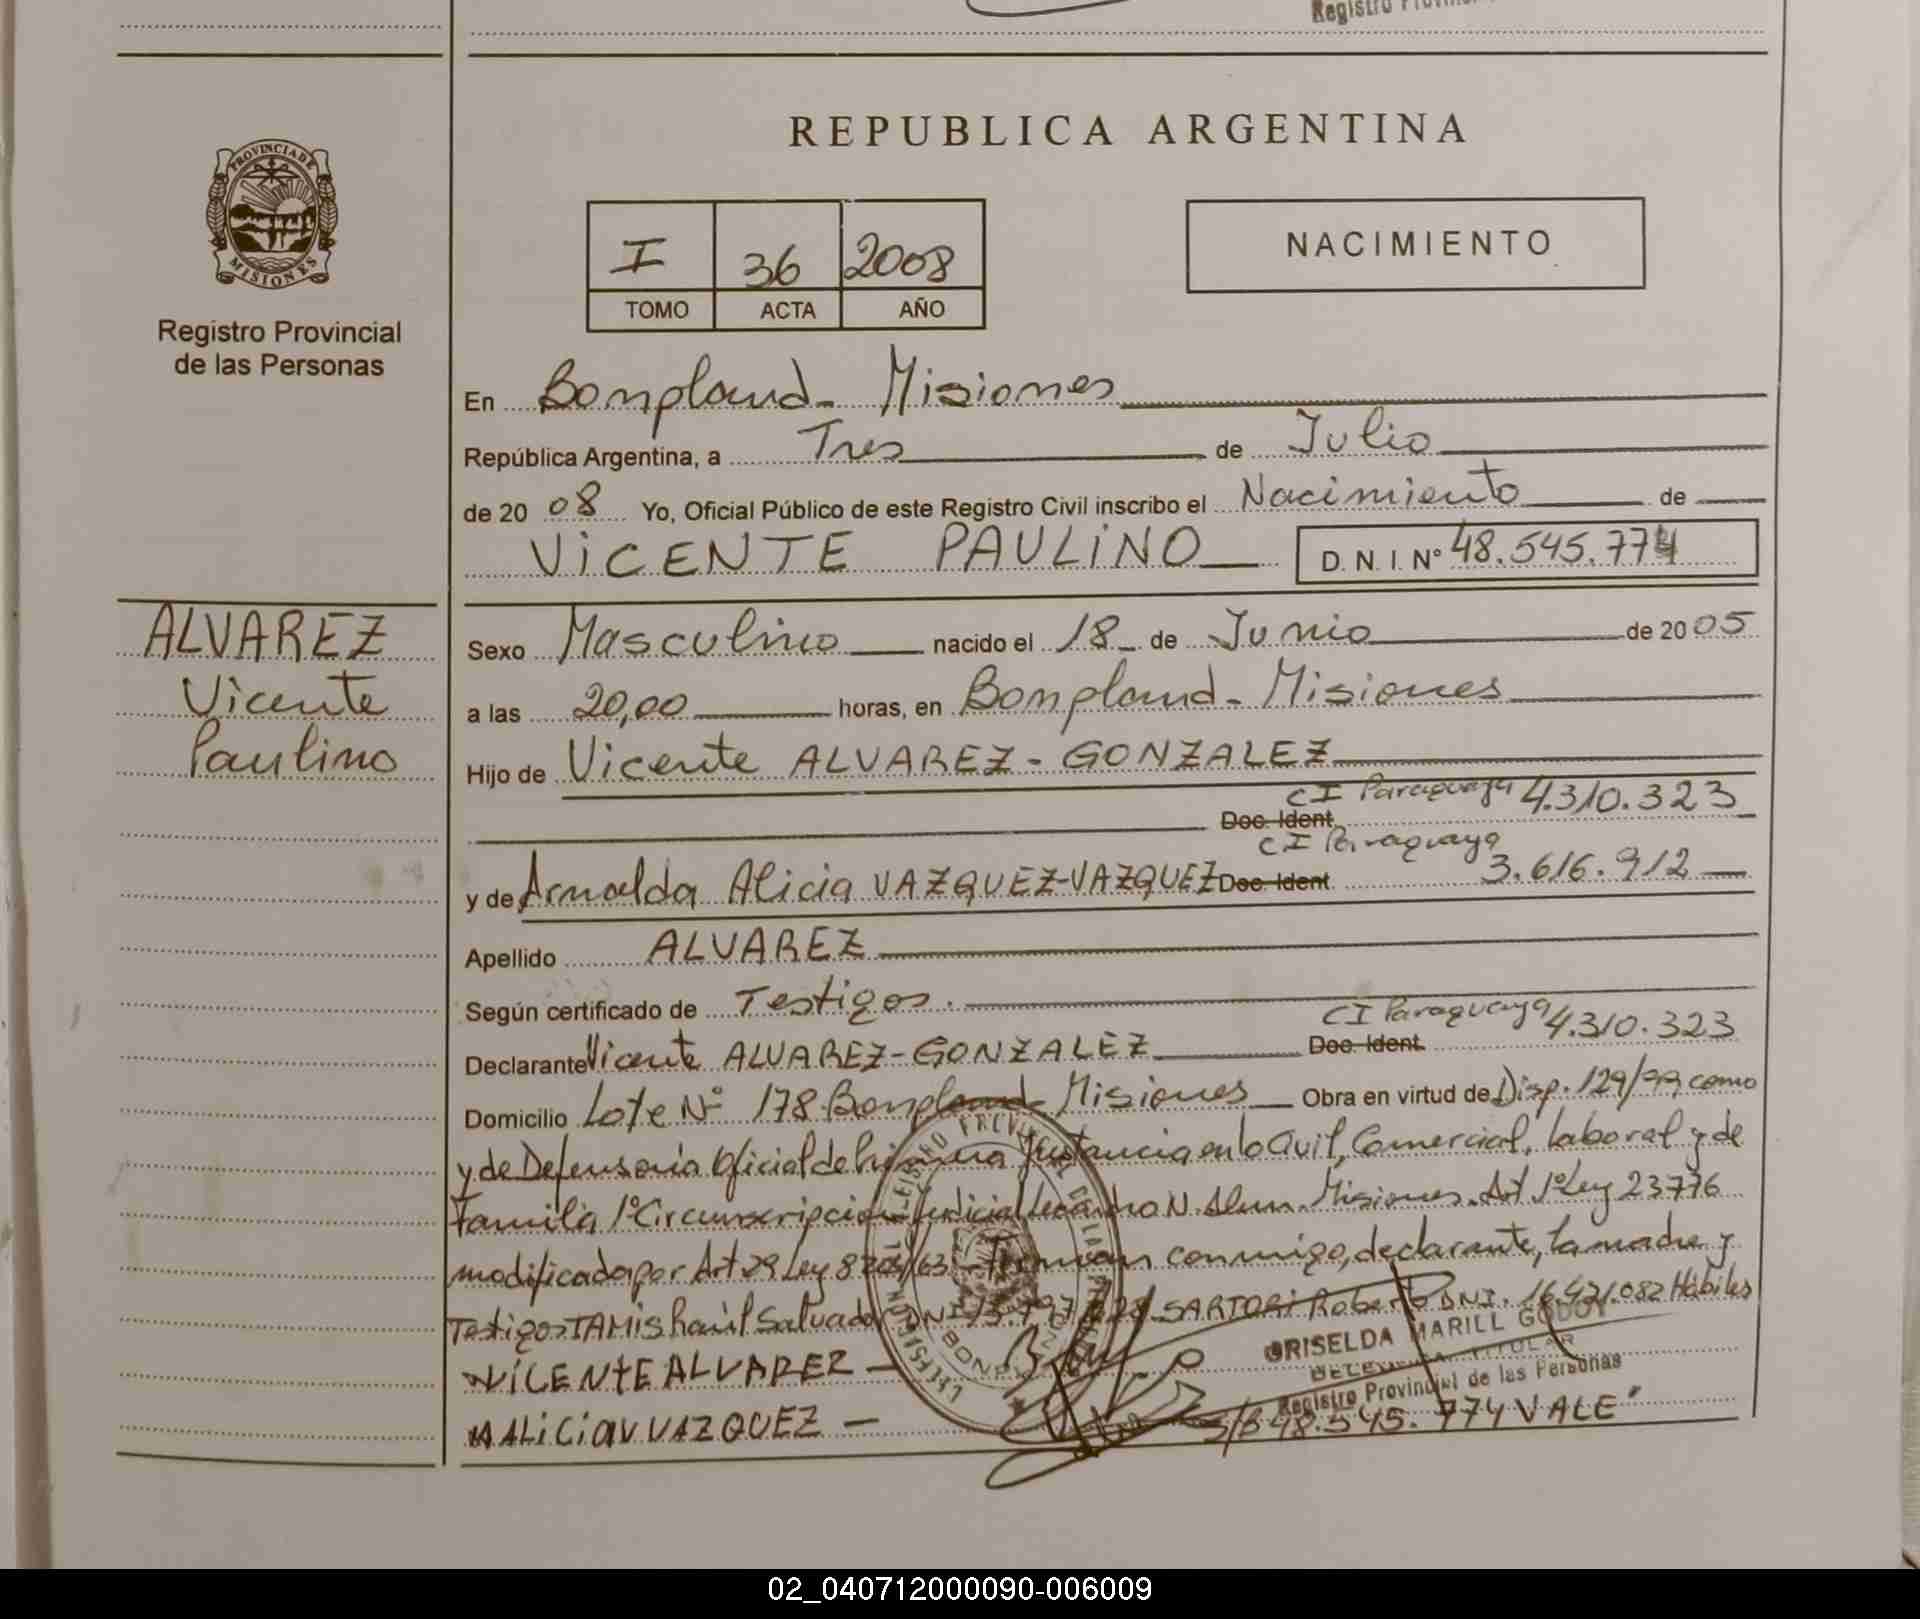 Registro Provin
REPUBLICA ARGENTINA
PROVINCIA DE
MISIONES
Registro Provincial
de las Personas
I 36 2008
TOMO ACTA AÑO
NACIMIENTO
En Bompland - Misiones
República Argentina, a Tres de Julio
de 20 08 Yo, Oficial Público de este Registro Civil inscribo el Nacimiento de
VICENTE PAULINO D. N. I. Nº 48.545.774
ALVAREZ
Vicente
Paulino
Sexo Masculino nacido el 18 de Junio de 20 05
a las 20,00 horas, en Bompland - Misiones
Hijo de Vicente ALVAREZ - GONZALEZ
CI Paraguaya 4.310.323
Doc. Ident.
CI Paraguaya
y de Arnalda Alicia VAZQUEZ-VAZQUEZ Doc. Ident. 3.616.912
Apellido ALVAREZ
Según certificado de Testigos.
CI Paraguaya 4.310.323
Declarante Vicente ALVAREZ-GONZALEZ Doc. Ident.
Domicilio Lote Nº 178 Bompland - Misiones Obra en virtud de Disp. 129/99, como
y de Defensoria Oficial de Primera Instancia en lo Civil, Comercial, laboral y de
Familia 1º Circunscripcion Judicial Leandro N. Alem. Misiones. Art 1º Ley 23776
modificada por Art 29 Ley 8204/63 - Firman conmigo, declarante, la madre y
Testigos TAMIS Raúl Salvador DNI SARTORI Roberto DNI. 16.421.082 Hábiles
VICENTE ALVAREZ -
ALICIA V VAZQUEZ -
GRISELDA MARILL GODOY
DELEGADA TITULAR
Registro Provincial de las Personas
S/B 48.545.774 VALE"
02_040712000090-006009